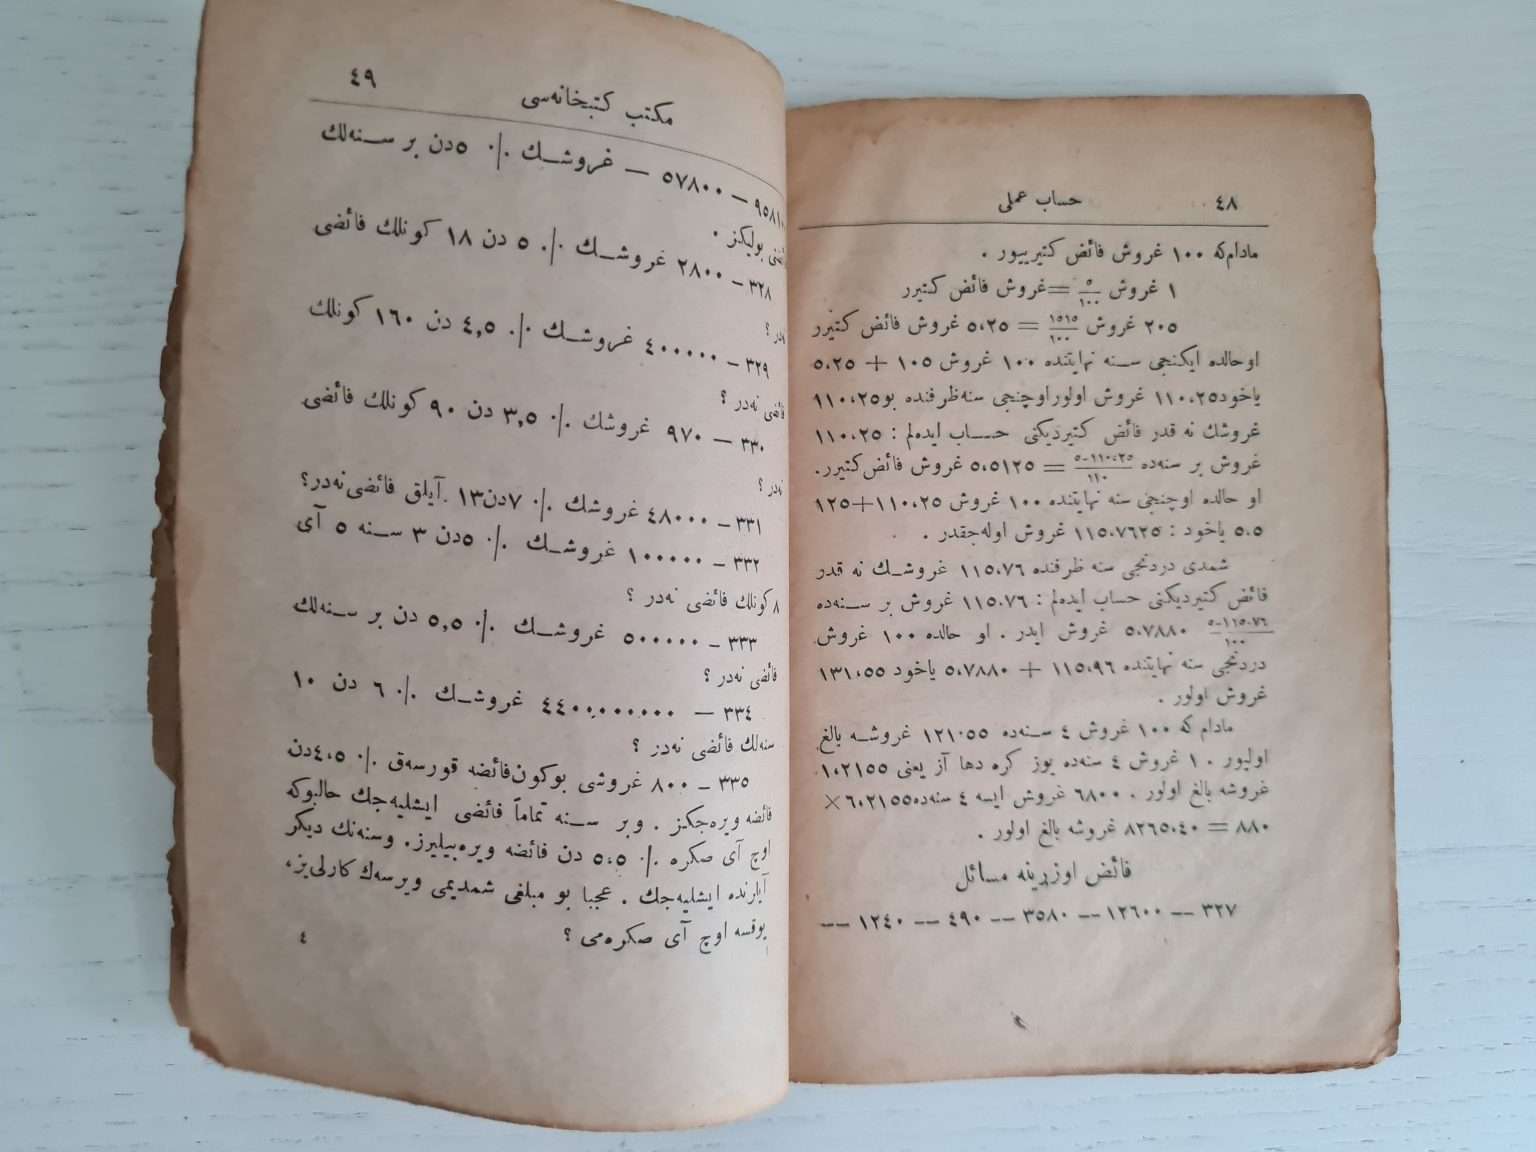 ٤٨ حساب عملی
مادام‌كه ١٠٠ غروش فائض كتیرییور .
١ غروش ٥/١٠٠ = غروش فائض كتیرر
٢٠٥ غروش ١٥١٥/١٠٠ = ٥،٢٥ غروش فائض كتیرر
اوحالده ایكنجی سنه نهایتنده ١٠٠ غروش ١٠٥ + ٥،٢٥
یاخود ١١٠،٢٥ غروش اولور اوچنجی سنه ظرفنده بو ١١٠،٢٥
غروشك نه قدر فائض كتیردیكنی حساب ایده‌لم : ١١٠،٢٥
غروش بر سنه‌ده ٥-١١٠،٢٥/١١٠ = ٥،٥١٢٥ غروش فائض كتیرر.
او حالده اوچنجی سنه نهایتنده ١٠٠ غروش ١١٠،٢٥+١٢٥
٥،٥ یاخود : ١١٥،٧٦٢٥ غروش اوله‌جقدر .
شمدی دردنجی سنه ظرفنده ١١٥،٧٦ غروشك نه قدر
فائض كتیردیكنی حساب ایده‌لم : ١١٥،٧٦ غروش بر سنه‌ده
٥-١١٥،٧٦/١٠٠ ٥،٧٨٨٠ غروش ایدر . او حالده ١٠٠ غروش
دردنجی سنه نهایتنده ١١٥،٩٦ + ٥،٧٨٨٠ یاخود ١٣١،٥٥
غروش اولور .
مادام كه ١٠٠ غروش ٤ سنه‌ده ١٢١،٥٥ غروشه بالغ
اولیور . ١ غروش ٤ سنه‌ده یوز كره دها آز یعنی ١،٢١٥٥
غروشه بالغ اولور . ٦٨٠٠ غروش ایسه ٤ سنه‌ده ٦،٢١٥٥×
٨٨٠ = ٨٢٦٥،٤٠ غروشه بالغ اولور .
فائض اوزرینه مسائل
٣٢٧ — ١٢٦٠٠ — ٣٥٨٠ — ٤٩٠ — ١٢٤٠ —
مكتب كتبخانه‌سی ٤٩
٩٥٨١٠ — ٥٧٨٠٠ — غروشك ٪ ٥دن بر سنه‌لك
بولیكز .
٣٢٨ — ٢٨٠٠ غروشك ٪ ٥ دن ١٨ كونلك فائضی
٣٢٩ — ٤٠٠٠٠٠ غروشك ٪ ٤,٥ دن ١٦٠ كونلك
فائضی نه‌در ؟
٣٣٠ — ٩٧٠ غروشك ٪ ٣,٥ دن ٩٠ كونلك فائضی
نه‌در ؟
٣٣١ — ٤٨٠٠٠ غروشك ٪ ٧دن ١٣ آیلق فائضی نه‌در؟
٣٣٢ — ١٠٠٠٠٠ غروشك ٪ ٥دن ٣ سنه ٥ آی
٨ كونلك فائضی نه‌در ؟
٣٣٣ — ٥٠٠٠٠٠ غروشك ٪ ٥,٥ دن بر سنه‌لك
فائضی نه‌در ؟
٣٣٤ — ٤٤٠٠,٠٠٠٠٠٠ غروشك ٪ ٦ دن ١٠
سنه‌لك فائضی نه‌در ؟
٣٣٥ — ٨٠٠ غروشی بوكون فائضه قورسه‌ق ٪ ٤،٥دن
فائضه ویره‌جكز . وبر سنه تماماً فائضی ایشلیه‌جك حالبوكه
اوچ آی صكره ٪ ٥،٥ دن فائضه ویره‌بیلیرز. وسنه‌نك دیكر
آیلرنده ایشلیه‌جك . عجبا بو مبلغی شمدیمی ویرسه‌ك كارلی‌یز،
یوقسه اوچ آی صكره‌می ؟
٤